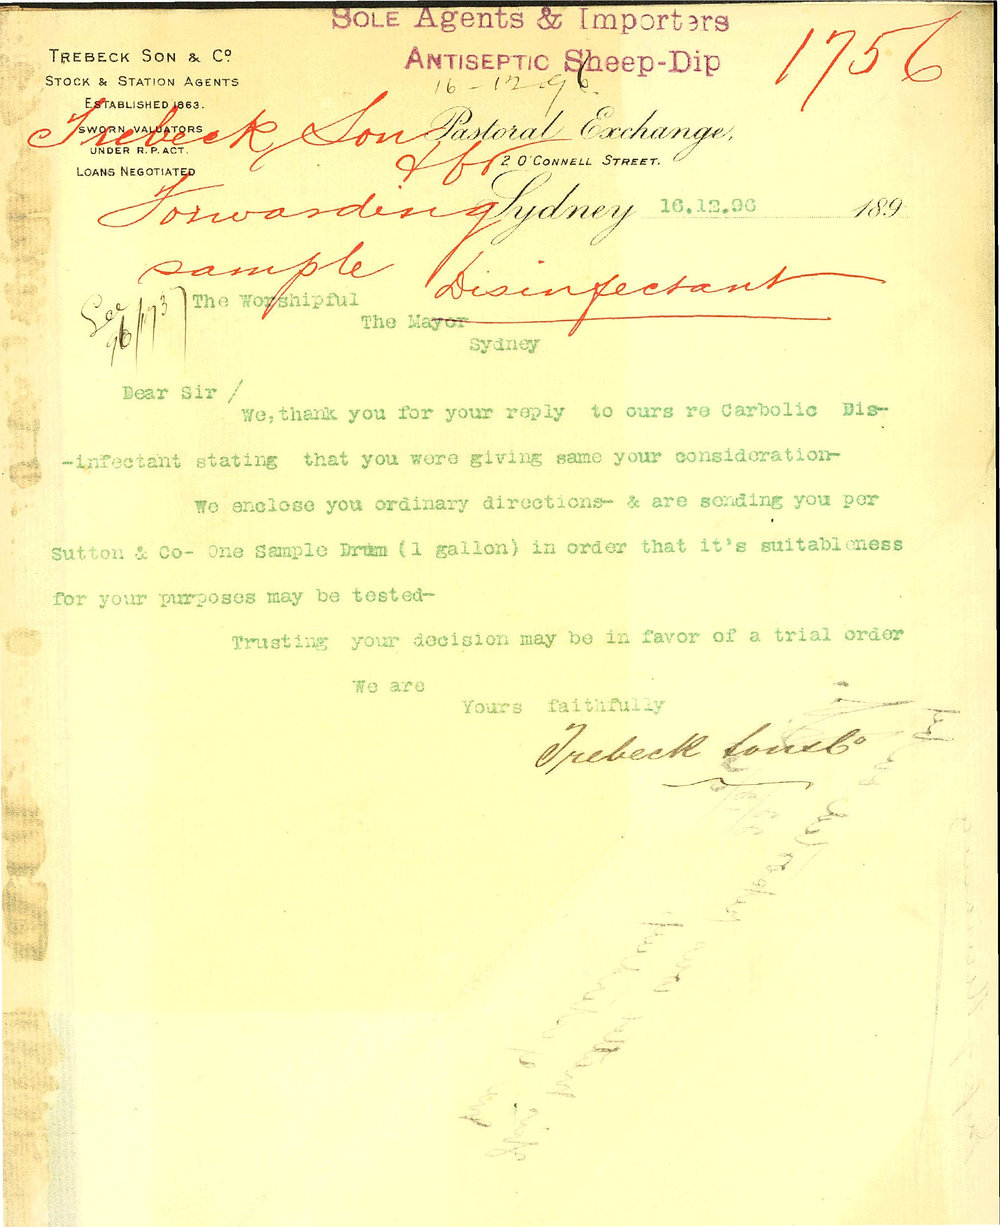 SOLE AGENTS & IMPORTERS
ANTISEPTIC SHEEP-DIP
1756
16-12-96.
TREBECK SON & Co
STOCK & STATION AGENTS
ESTABLISHED 1863.
SWORN VALUATORS
UNDER R.P. ACT.
LOANS NEGOTIATED
Pastoral Exchange,
2 O'CONNELL STREET.
Sydney 16.12.96 189
Trebeck, Son
& Co
Forwarding
sample Disinfectant
See
96/1737
The Worshipful
The Mayor
Sydney
Dear Sir /
We, thank you for your reply to ours re Carbolic Dis-
-infectant stating that you were giving same your consideration-
We enclose you ordinary directions- & are sending you per
Sutton & Co- One Sample Drum (1 gallon) in order that it's suitableness
for your purposes may be tested-
Trusting your decision may be in favor of a trial order
We are
Yours faithfully
Trebeck Son & Co